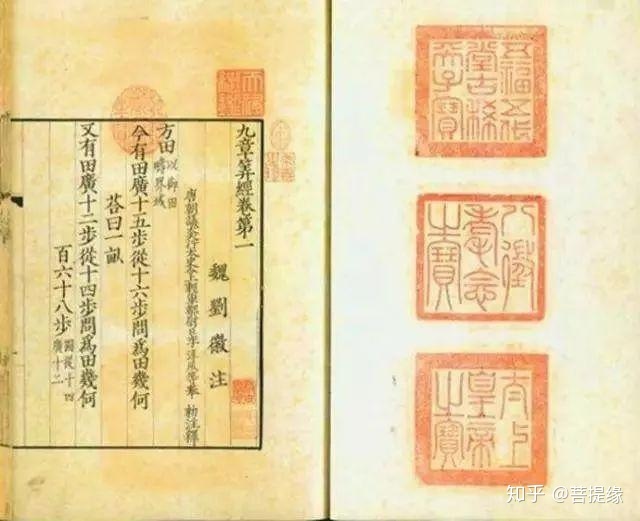 五福五代
堂古稀
天子寶
八徵
耄念
之寶
太上
皇帝
之寶
九章筭經卷第一
魏劉徽注
唐朝議大夫行太史令上輕車都尉臣李淳風等奉 勑注釋
方田以御田疇界域
今有田廣十五步從十六步問爲田幾何
荅曰一畝
又有田廣十二步從十四步問爲田幾何
百六十八步圖從十四廣十二
知乎 @菩提缘